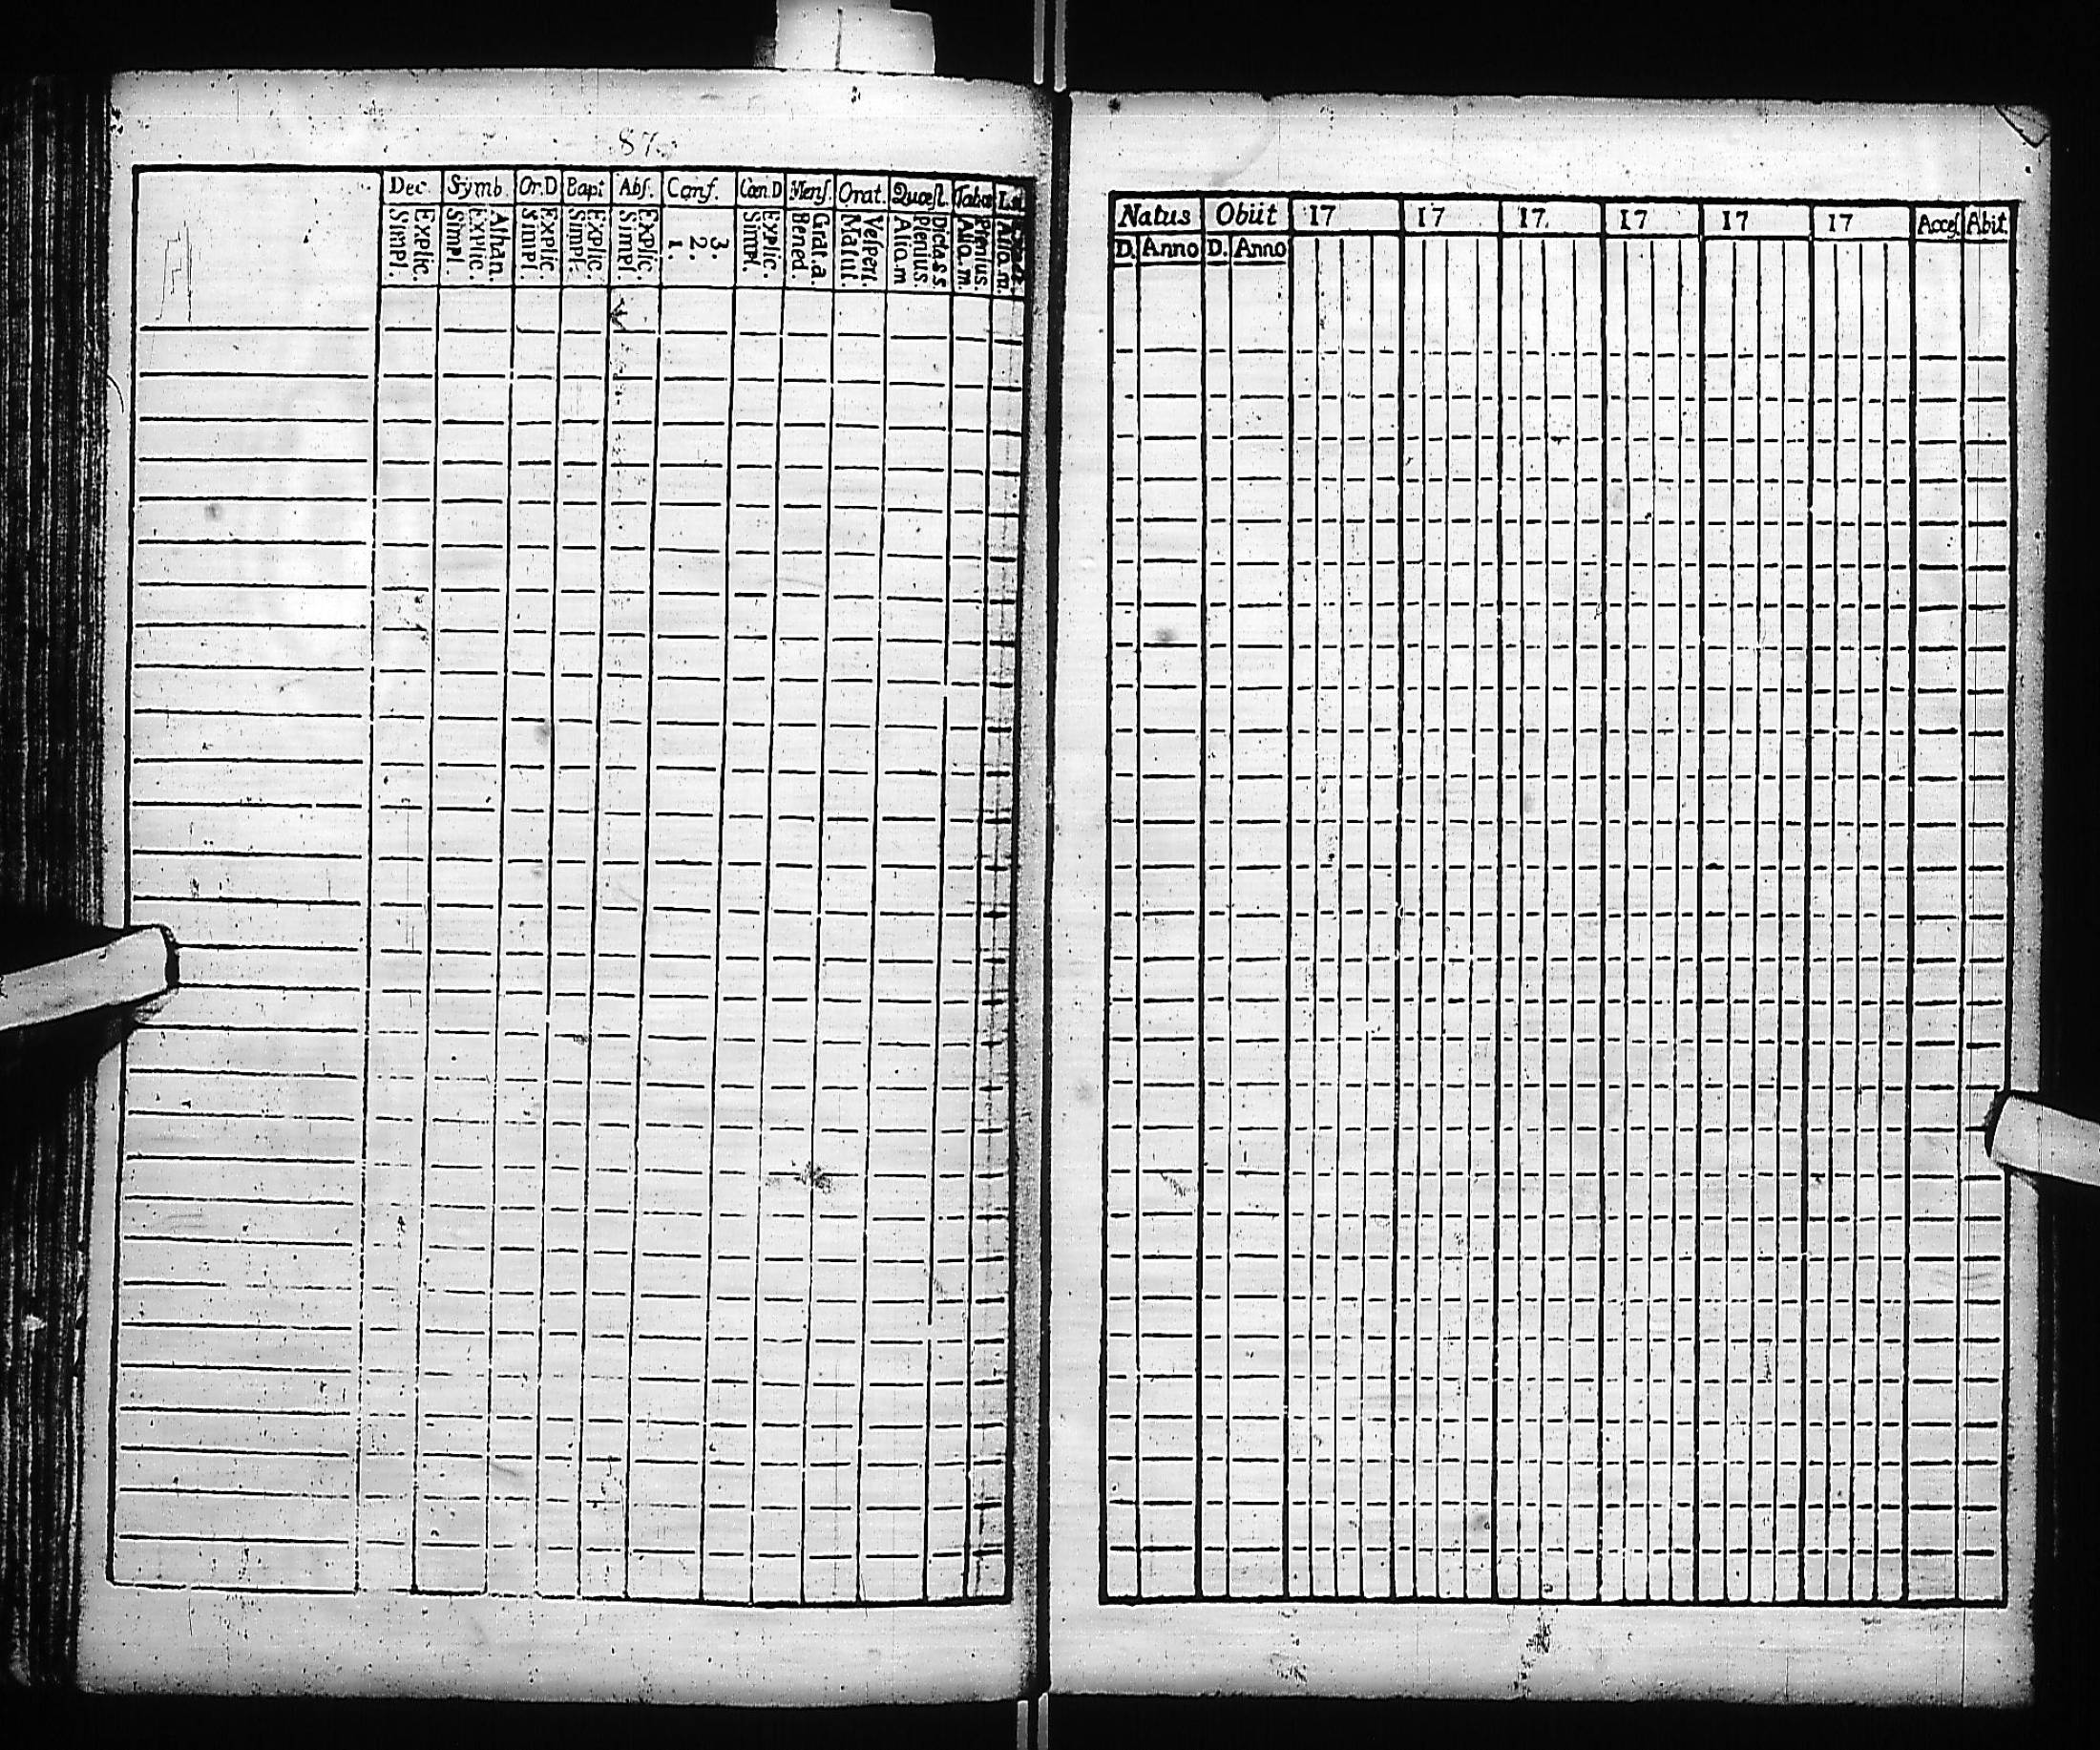 87.
Dec. Symb. Or.D Bapt Abs. Conf. Cœn.D Mens. Orat. Quæst. Tabœ
Simpl. Explic. Simpl. Explic. Athan. Simpl. Explic. Simpl. Explic. Simpl. Explic. 1. 2. 3. Simpl. Explic. Bened. Grat.a. Matut. Vespert. Aliq.m Plenius. Dict.a s s. Aliq.m. Plenius. Aliq.m.
Natus Obiit 17 17 17. 17 17 17 Acces. Abit.
D. Anno D. Anno